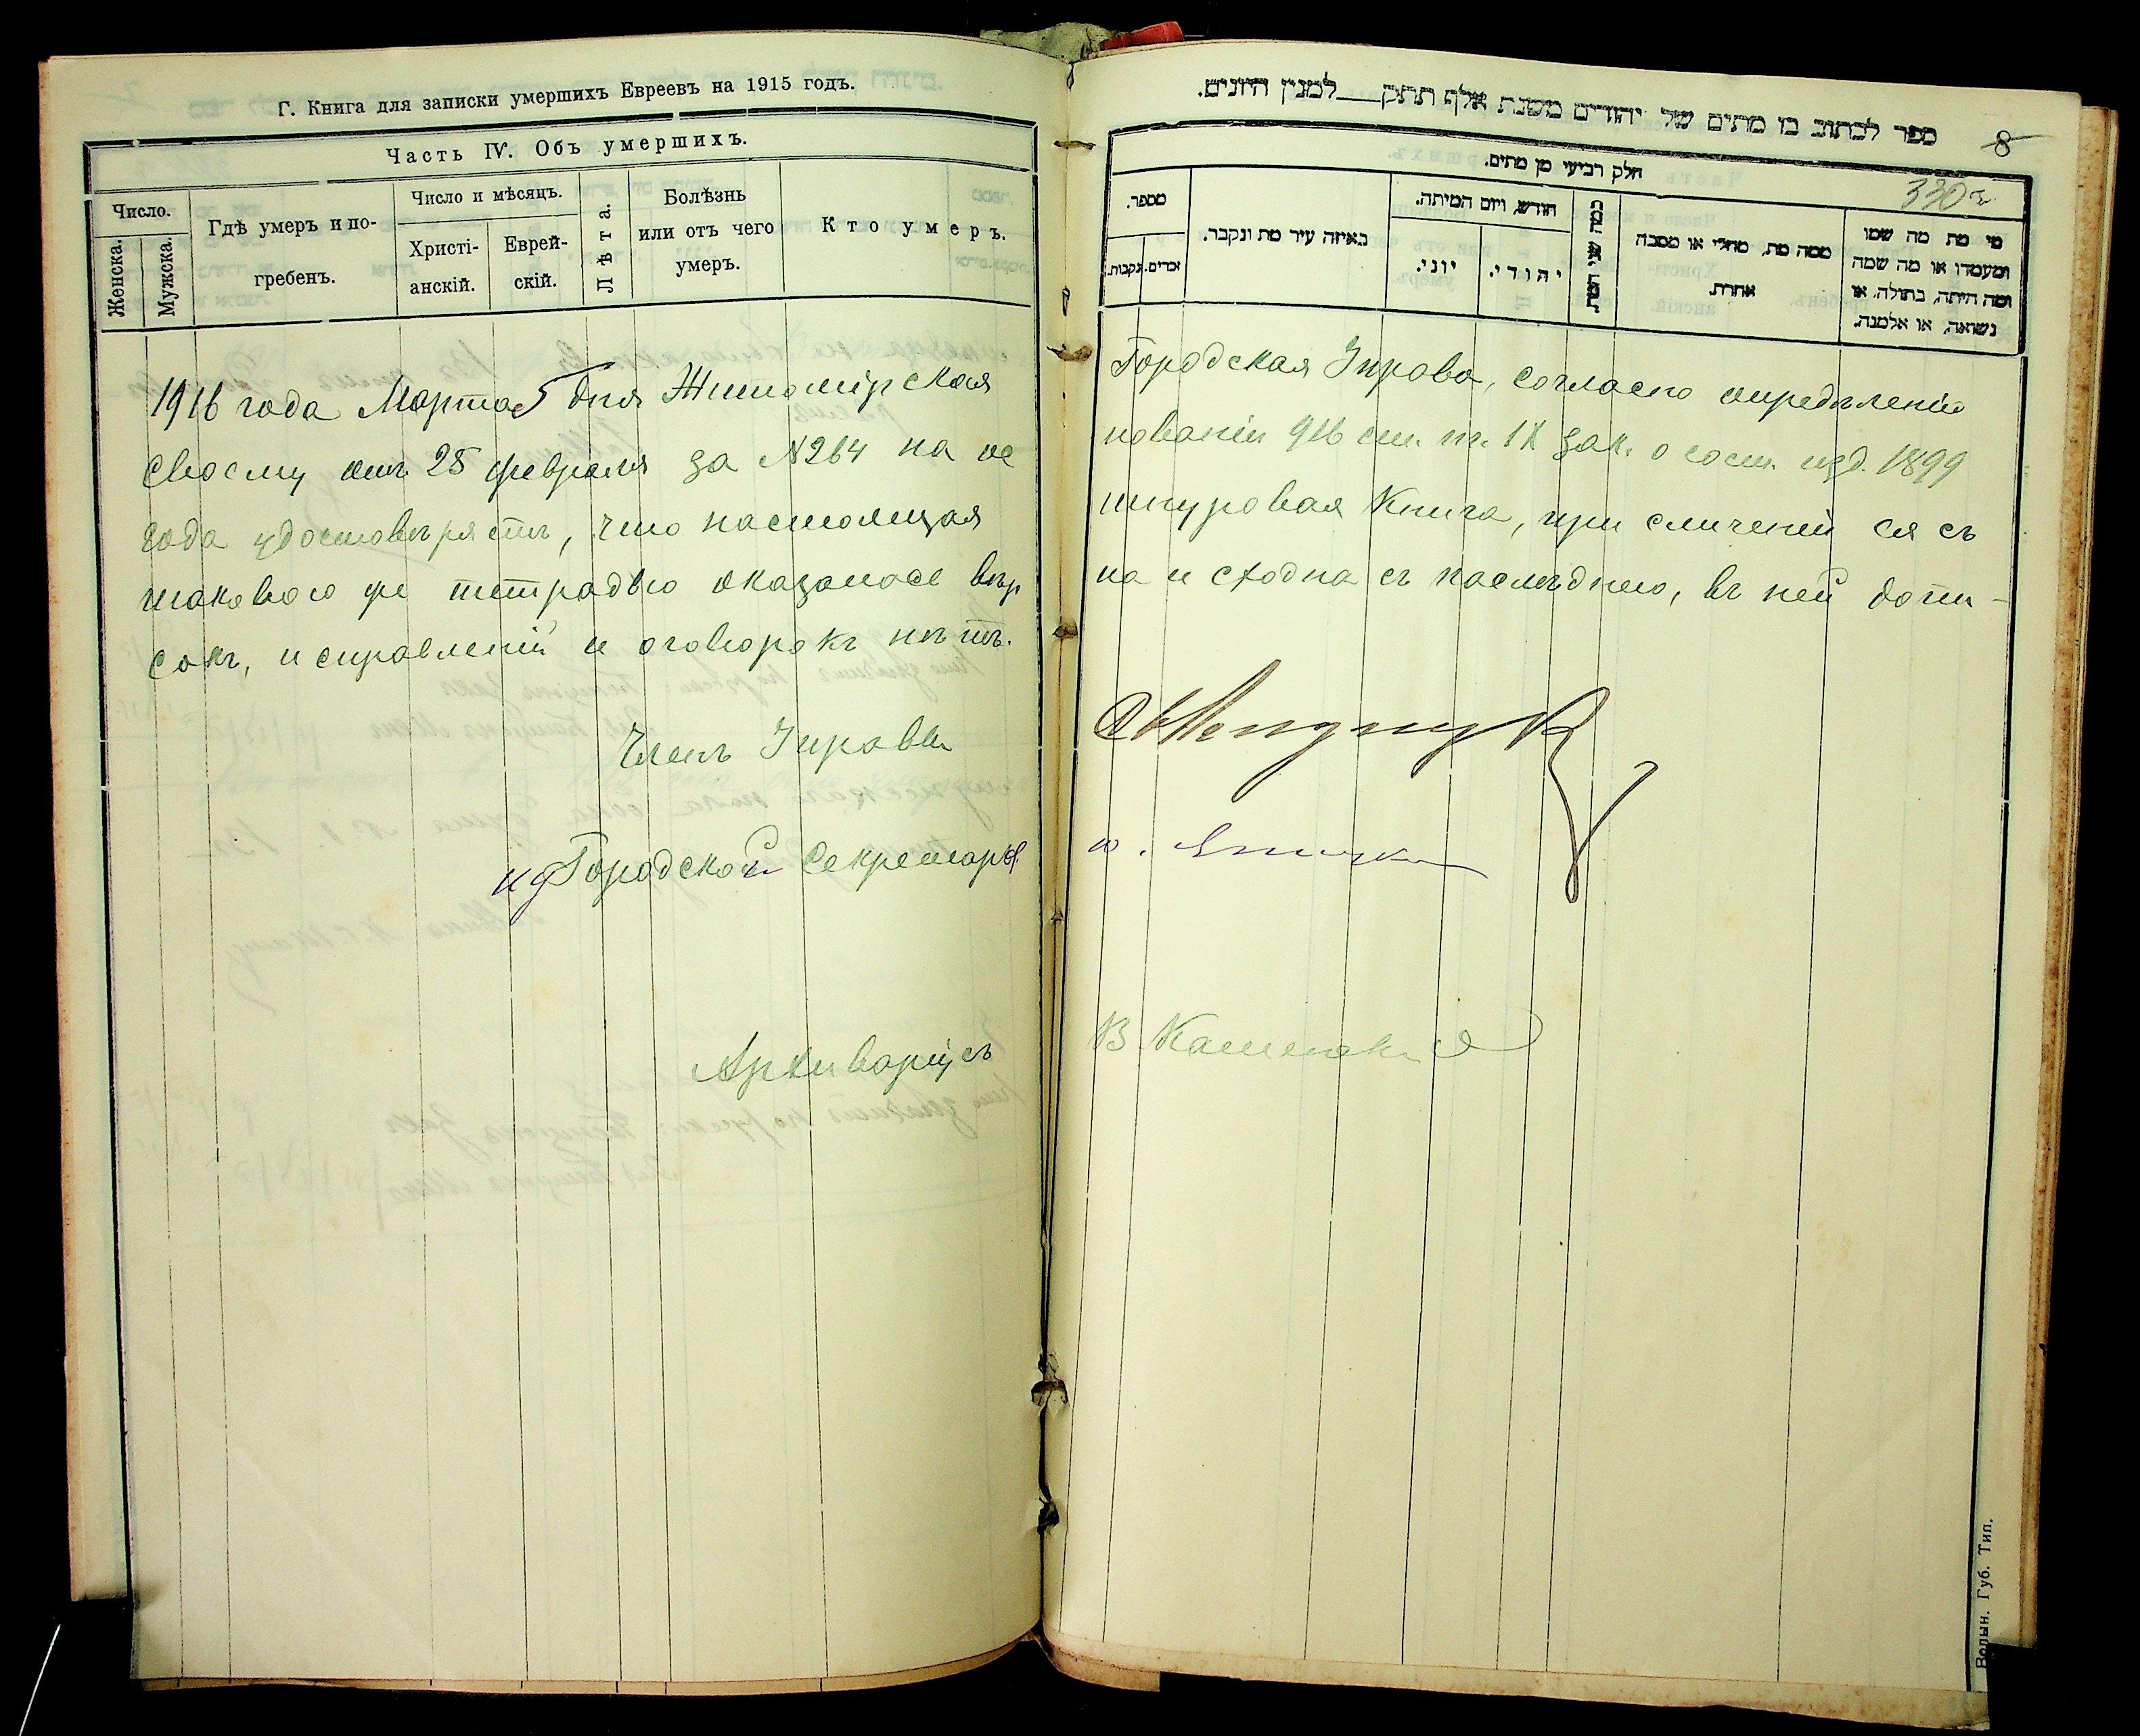 Г. Книга для записки умершихъ Евреевъ на 1915 годъ.
Часть IV. Объ умершихъ.
Число.
Женска.
Мужска.
Гдѣ умеръ и по-
гребенъ.
Число и мѣсяцъ.
Христі-
анскій.
Еврей-
скій.
Лѣта.
Болѣзнь
или отъ чего
умеръ.
Кто умеръ.
1916 года Марта 5 дня Житомірская
своему отъ 25 февраля за N264 на ос
года удостовѣряетъ, что настоящая
таковою же тетрадью оказалась вѣр
сокъ, исправленій и оговорокъ нѣтъ.
Членъ Управы
ид Городской Секретарь
Архиваріусъ
ספר לכתוב בו מתים של יהודים משנת אלף תתק למנין היונים.
8
330
חלק רביעי מן מתים.
מספר.
זכרים.
נקבות.
באיזה עיר מת ונקבר.
חודש, ויום המיתה.
יוני.
יהודי.
כמה שני המת
ממה מת, מחלי או מסבה
אחרת.
מי מת מה שמו
ומעמדו או מה שמה
ומה היתה, בתולה, או
נשואה, או אלמנה.
Городская Управа, согласно опредѣленію
нованіи 916 ст. т. IX зак. о сост. изд. 1899
шнуровая Книга, при сличеніи ея съ
на и сходна съ послѣднею, въ ней допи-
В Каменскій
Волын. Губ. Тип.